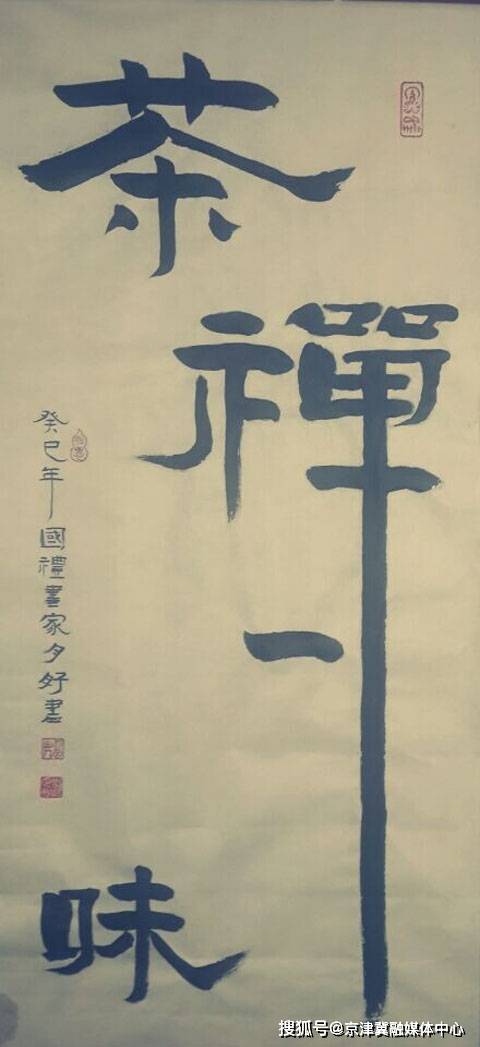 茶
禪
一
味
癸巳年國禮書家夕好書
搜狐号@京津冀融媒体中心